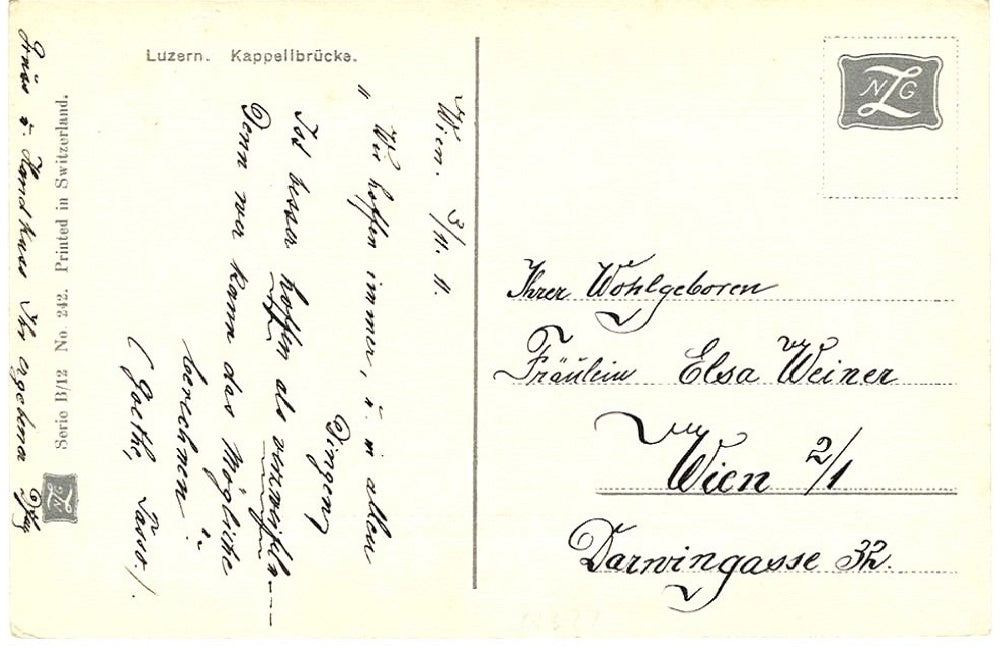 Luzern. Kappellbrücke.
Wien. 3/11. 11.
„Wir hoffen immer, u. in allen
Dingen
Ist besser hoffen als verzweifeln---
Denn wer kann das Mögliche
berechnen"
(Goethe, Tasso.)
Gruss u. Handkuss Ihr ergebener
Serie B/12 No. 242. Printed in Switzerland.
NZG
NZG
Ihrer Wohlgeboren
Fräulein Elsa Weiner
Wien 2/1
Darwingasse 32.